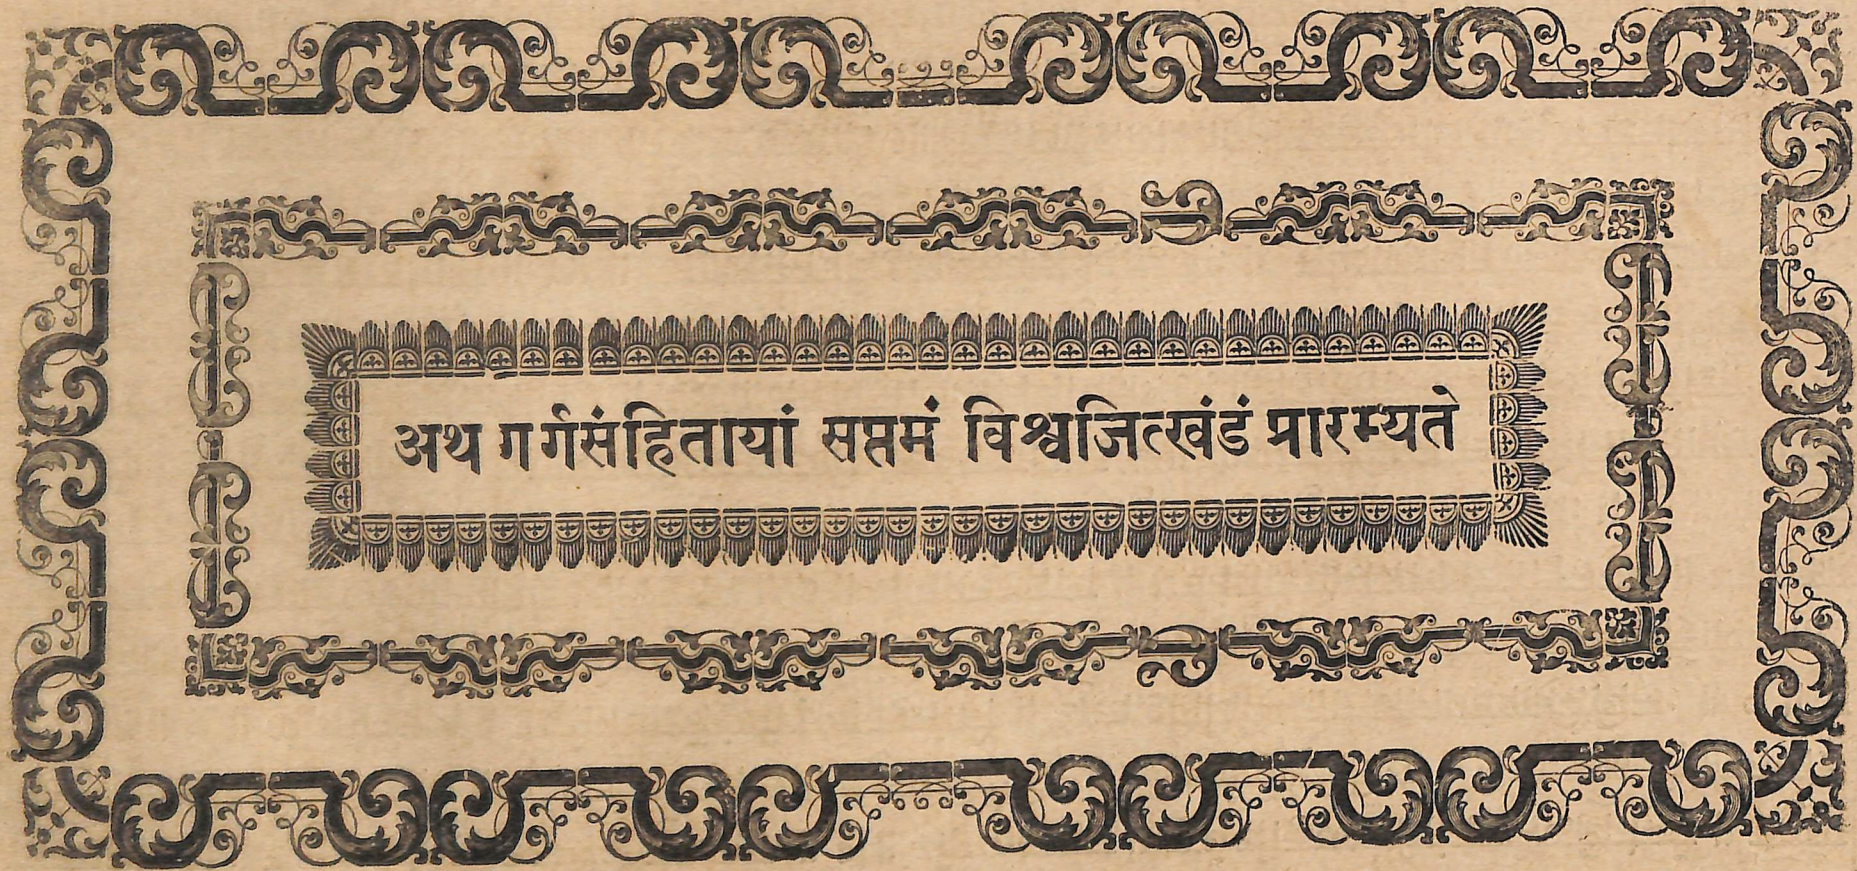 अथ गर्गसंहितायां सप्तमं विश्वजित्खंडं प्रारम्यते